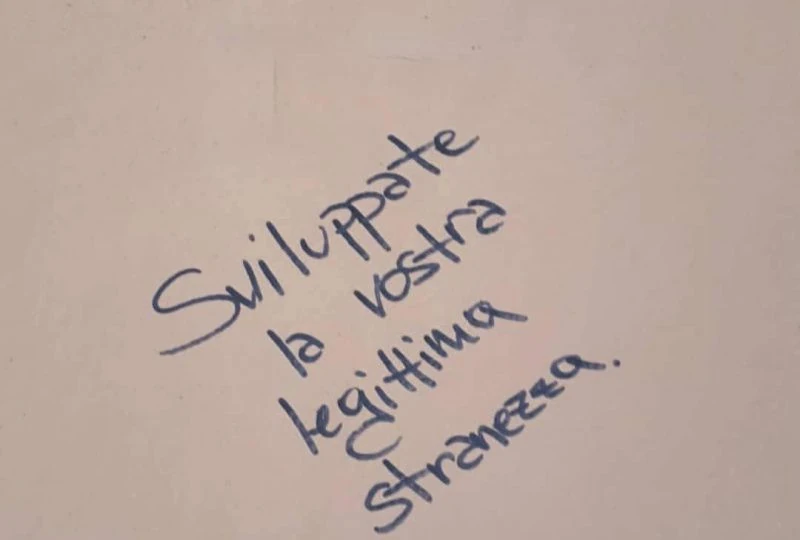 Sviluppate
la vostra
legittima
stranezza.